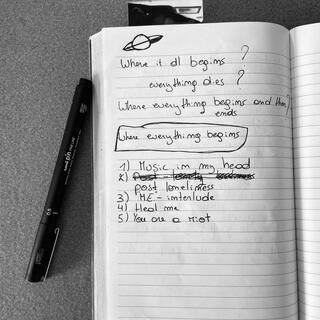 Where it all begins ?
everything dies ?
Where everything begins and then ?
ends
Where everything begins
1) Music in my head
2) Post - lonely loneliness
post loneliness
3) M.E. - interlude
4) Heal me
5) You are a riot
uni pin
0.5